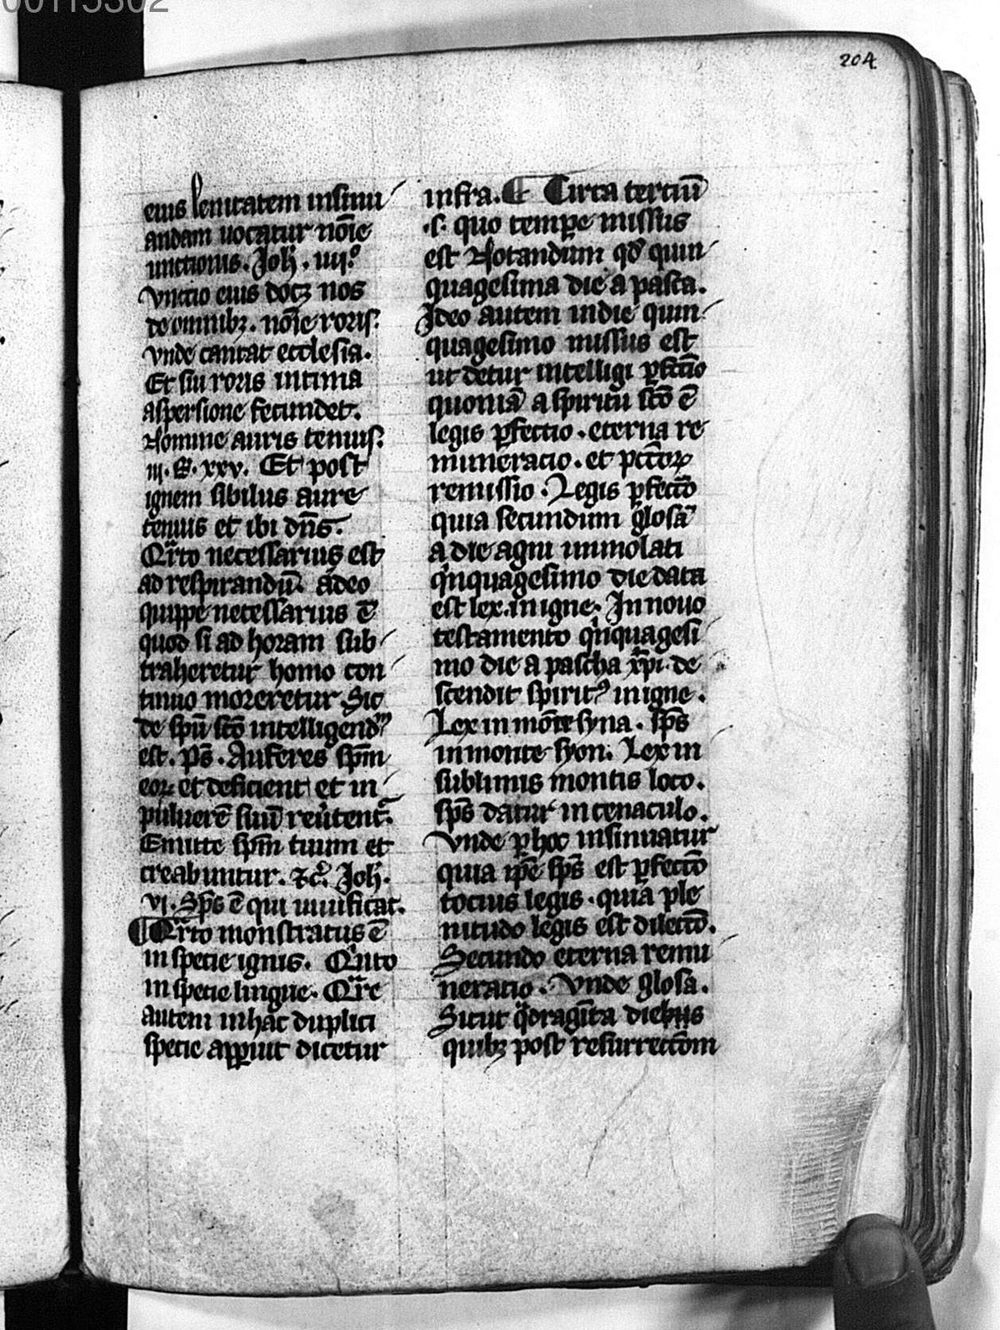 00115302
204
eius lenitatem insinu
andam uocatur nōīe
unctionis. Joh̄. iiij.º
vnctio eius docꝫ nos
de omnibꝫ. nōīe roris.
vnde cantat ecclesia.
Et sui roris intima
aspersione fecundet.
Nomine auris tenuis.
iij. R. xxv. Et post
ignem sibilus aure
tenuis et ibi dn̄s.
Qͣrto necessarius est
ad respirandū. adeo
quippe necessarius ē
quod si ad horam sub
traheretur homo con
tinuo moreretur. Sic
de spū sc̄o intelligendᷣ
est. ps̄. Auferes sp̄m
eoꝝ et deficient et in
puluerē suū reu̓tent᷑.
Emitte sp̄m tuum et
creabuntur. ⁊c̄. Joh̄.
vi. Sp̄s ē qui uiuificat.
¶ Qͣrto monstratus ē
in specie ignis. Qͥnto
in specie lingue. Qͣre
autem in hac duplici
specie apꝑuit dicetur
infra. ¶ Circa terciū
.s. quo temꝑe missus
est Notandum qd̓ quin
quagesima die a pasca.
Ideo autem in die quin
quagesimo missus est
ut detur intelligi ꝑfectio
quoniā a spiritu sc̄o ē
legis ꝑfectio. eterna re
muneracio. et pcc̄oꝝ
remissio. Legis ꝑfectō
quia secundum glosā
a die agni immolati
qͥnquagesimo die data
est lex in igne. In nouo
testamento qͥnquagesi
mo die a pascha xp̄i de
scendit spiritꝰ in igne.
Lex in mōte syna. sp̄s
in monte syon. Lex in
sublimis montis loco.
sp̄s datur in cenaculo.
Vnde ꝑ hoc insinuatur
quia ip̄e sp̄s est ꝑfectō
tocius legis. quia ple
nitudo legis est dilectō.
Secundo eterna remu
neracio. Vnde glosa.
Sicut qͣdragīta diebus
quibꝫ post resurrectōm